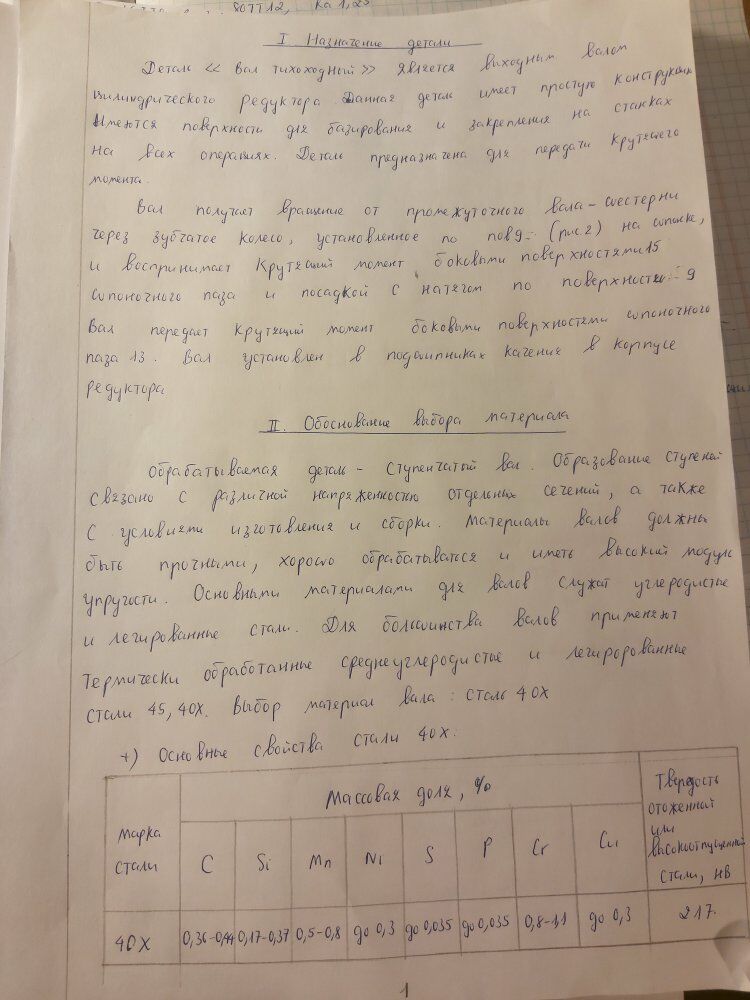 80ТТ12, Ка 1,25
I Назначение детали
Деталь << Вал тихоходный >> является выходным валом
цилиндрического редуктора. Данная деталь имеет простую конструкцию
Имеются поверхности для базирования и закрепления на станках
на всех операциях. Деталь предназначена для передачи крутящего
момента.
Вал получает вращение от промежуточного вала-шестерни
через зубчатое колесо, установленное по пов 9 (рис 2) на шпонке,
и воспринимает крутящий момент боковыми поверхностями 15
шпоночного паза и посадкой с натягом по поверхности 9
Вал передает крутящий момент боковыми поверхностями шпоночного
паза 13. Вал установлен в подшипниках качения в корпусе
редуктора
II. Обоснование выбора материала
Обрабатываемая деталь - ступенчатый вал. Образование ступеней
связано с различной напряженностью отдельных сечений, а также
с условиями изготовления и сборки. Материалы валов должны
быть прочными, хорошо обрабатываться и иметь высокий модуль
упругости. Основными материалами для валов служат углеродистые
и легированные стали. Для большинства валов применяют
термически обработанные среднеуглеродистые и легированные
стали 45, 40Х. Выбор материал вала : сталь 40Х
+) Основные свойства стали 40Х:
Марка стали
Массовая доля, %
Твердость отоженной или высокоотпущенной стали, НВ
C Si Mn Ni S P Cr Cu
40Х 0,36-0,44 0,17-0,37 0,5-0,8 до 0,3 до 0,035 до 0,035 0,8-1,1 до 0,3 217.
1